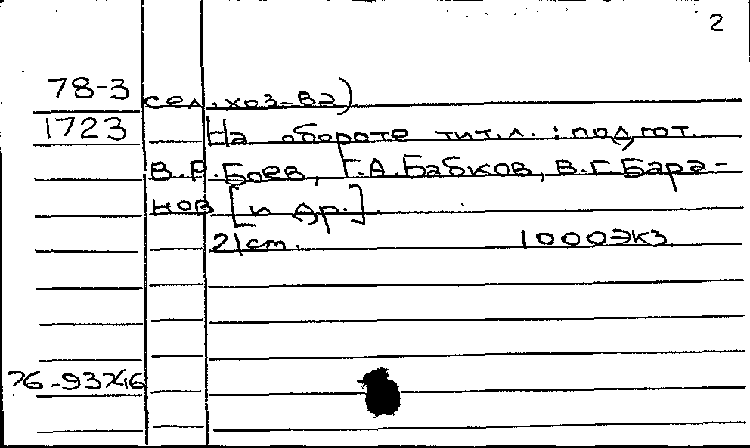 2
78-3 сел.хоз-ва)
1723 На обороте тит.л. : подгот.
В.Р.Боев, Г.А.Бабков, В.Г.Бара-
нов [и др.].
21см. 1000экз